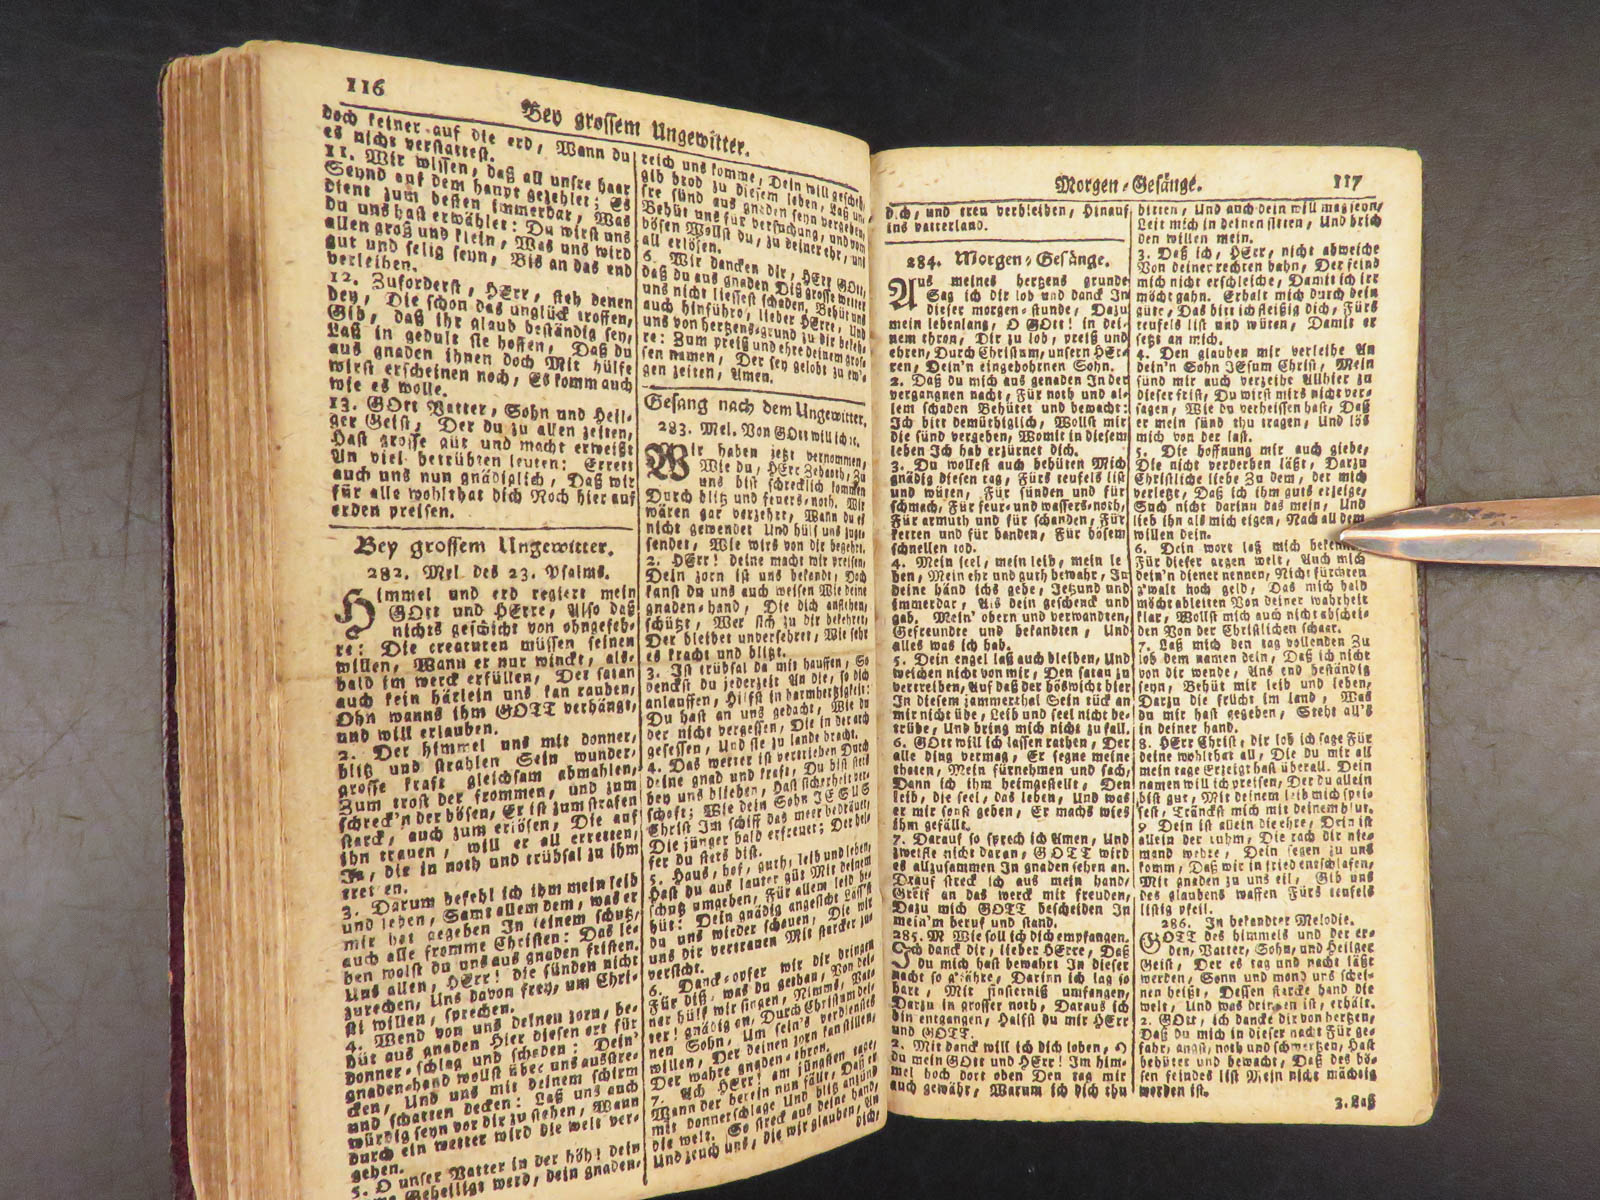 116
Bey grossem Ungewitter.
doch keiner auf die erd, Wann du
es nicht verstattest.
11. Wir wissen, daß all unsre haar
Seynd auf dem haupt gezehlet: Es
dient zum besten immerdar, Was
du uns hast erwählet: Du wirst uns
allen groß und klein, Was uns wird
gut und selig seyn, Bis an das end
verleihen.
12. Zuforderst, HErr, steh denen
bey, Die schon das unglück troffen,
Gib, daß ihr glaub beständig sey,
Laß in gedult sie hoffen, Daß du
aus gnaden ihnen doch Mit hülfe
wirst erscheinen noch, Es komm auch
wie es wolle.
13. GOtt Vatter, Sohn und Heili-
ger Geist, Der du zu allen zeiten,
Hast grosse güt und macht erweißt
An viel betrübten leuten: Errett
auch uns nun gnädiglich, Daß wir
für alle wohlthat dich Noch hier auf
erden preisen.
Bey grossem Ungewitter.
282. Mel. des 23. Psalms.
Himmel und erd regiert mein
GOtt und HErre, Also daß
nichts geschicht von ohngefeh-
re: Die creaturen müssen seinen
willen, Wann er nur winckt, als-
bald im werck erfüllen, Der satan
auch kein härlein uns kan rauben,
Ohn wanns ihm GOTT verhängt,
und will erlauben.
2. Der himmel uns mit donner,
blitz und strahlen Sein wunder,
grosse kraft gleichsam abmahlen,
Zum trost der frommen, und zum
schreck'n der bösen, Er ist zum strafen
starck, auch zum erlösen, Die auf
ihn trauen, will er all erretten,
Ja, die in noth und trübsal zu ihm
tretten.
3. Darum befehl ich ihm mein leib
und leben, Samt allem dem, was er
mir hat gegeben In seinem schutz,
auch alle fromme Christen: Das le-
ben wolst du uns aus gnaden fristen.
Uns allen, HErr! die sünden nicht
zurechen, Uns davon frey, um Chri-
sti willen, sprechen.
4. Wend von uns deinen zorn, be-
hüt aus gnaden Hier diesen ort für
donner-schlag und schaden: Dein'
gnaden-hand wollst über uns ausstre-
cken, Und uns mit deinem schirm
und schatten decken: Laß uns auch
würdig seyn vor dir zu stehen, Wann
durch ein wetter wird die welt ver-
gehen.
5. O unser Vatter in der höh! dein
Geheiligt werd, dein gnaden-
reich uns komme, Dein will gescheh,
gib brod zu diesem leben, Laß un-
sre sünd aus gnaden seyn vergeben,
Behüt uns für versuchung, und vom
bösen Wollst du, zu deiner ehr, uns
all erlösen.
6. Wir dancken dir, HErr GOtt,
daß du aus gnaden Diß grosse wetter
uns nicht liessest schaden, Behüt uns
auch hinführo, lieber HErre, Und
uns von hertzens-grund zu dir bekeh-
re: Zum preiß und ehre deinem gros-
sen namen, Der sey gelobt zu ew'-
gen zeiten, Amen.
Gesang nach dem Ungewitter.
283. Mel. Von GOtt will ich ꝛc.
Wir haben jetzt vernommen,
Wie du, HErr Zebaoth, Zu
uns bist schrecklich kommen
Durch blitz und feuers-noth. Wir
wären gar verzehrt, Wann du es
nicht gewendet Und hülf uns zuge-
sendet, Wie wirs von dir begehrt.
2. HErr! deine macht wir preisen,
Dein zorn ist uns bekandt, Doch
kanst du uns auch weisen Wie deine
gnaden-hand, Die dich anflehen,
schützt, Wer sich zu dir bekehret,
Der bleibet unversehret, Wie sehr
es kracht und blitzt.
3. Ist trübsal da mit hauffen, So
denckst du jederzeit An die, so dich
anlauffen, Hilfst in barmhertzigkeit:
Du hast an uns gedacht, Wie du
der nicht vergessen, Die in der arch
gesessen, Und sie zu lande bracht.
4. Das wetter ist vertrieben Durch
deine gnad und kraft, Du bist stets
bey uns blieben, Hast sicherheit ver-
schaft; Wie dein Sohn JESUS
Christ Im schiff das meer bedräuet,
Die jünger bald erfreuet; Der hel-
fer du stets bist.
5. Haus, hof, guth, leib und leben,
Hast du aus lauter güt Mit deinem
schutz umgeben, Für allem leid be-
hüt: Dein gnädig angesicht Läss'st
du uns wieder schauen, Die wir
uns dir vertrauen Mit starcker zu-
versicht.
6. Danck-opfer wir dir bringen
Für diß, was du gethan, Von dei-
ner hülf wir singen, Nimms, Vat-
ter! gnädig an, Durch Christum dei-
nen Sohn, Um sein's verdienstes
willen, Der deinen zorn kan stillen,
Der wahre gnaden-thron.
7. Ach HErr! am jüngsten tage,
Wann der herein nun fällt, Daß er
mit donnerschlage Und blitz anzünd
die welt. So streck aus deine hand,
Und zeuch uns, die wir glauben, An
dich,
Morgen-Gesänge.
117
dich, und treu verbleiben, Hinauf
ins vatterland.
284. Morgen-Gesänge.
Aus meines hertzens grunde
Sag ich dir lob und danck In
dieser morgen-stunde, Dazu
mein lebenlang, O GOtt! in dei-
nem thron, Dir zu lob, preiß und
ehren, Durch Christum, unsern HEr-
ren, Dein'n eingebohrnen Sohn.
2. Daß du mich aus genaden In der
vergangnen nacht, Für noth und al-
lem schaden Behütet und bewacht:
Ich bitt demüthiglich, Wollst mir
die sünd vergeben, Womit in diesem
leben Ich hab erzürnet dich.
3. Du wollest auch behüten Mich
gnädig diesen tag, Fürs teufels list
und wüten, Für sünden und für
schmach, Für feur- und wassers-noth,
Für armuth und für schanden, Für
ketten und für banden, Für bösem
schnellen tod.
4. Mein seel, mein leib, mein le-
ben, Mein ehr und guth bewahr, In
deine händ ichs gebe, Jetzund und
immerdar, Als dein geschenck und
gab. Mein' obern und verwandten,
Gefreundte und bekandten, Und
alles was ich hab.
5. Dein engel laß auch bleiben, Und
weichen nicht von mir, Den satan zu
vertreiben, Auf daß der böswicht hier
In diesem jammerthal Sein tück an
mir nicht übe, Leib und seel nicht be-
trübe, Und bring mich nicht zu fall.
6. GOtt will ich lassen rathen, Der
alle ding vermag, Er segne meine
thaten, Mein fürnehmen und sach,
Dann ich ihm heimgestellt, Den
leib, die seel, das leben, Und was
er mir sonst geben, Er machs wies
ihm gefällt.
7. Darauf so sprech ich Amen, Und
zweifle nicht daran, GOTT wird
es allzusammen In gnaden sehen an.
Drauf streck ich aus mein hand,
Greif an das werck mit freuden,
Dazu mich GOTT bescheiden In
mein'm beruf und stand.
285. M Wie soll ich dich empfangen.
Ich danck dir, lieber HErre, Daß
du mich hast bewahrt In dieser
nacht so g'fähre, Darinn ich lag so
hart, Mit finsterniß umfangen,
Darzu in grosser noth, Daraus ich
bin entgangen, Halfst du mir HErr
und GOTT.
2. Mit danck will ich dich loben, O
du mein GOtt und HErr! Im him-
mel hoch dort oben Den tag mir
auch gewähr, Warum ich dich thu
bitten, Und auch dein will mag seyn,
Leit mich in deinen sitten, Und brich
den willen mein.
3. Daß ich, HErr, nicht abweiche
Von deiner rechten bahn, Der feind
mich nicht erschleiche, Damit ich irr
möcht gahn. Erhalt mich durch dein
güte, Das bitt ich fleißig dich, Fürs
teufels list und wüten, Damit er
setzt an mich.
4. Den glauben mir verleihe An
dein'n Sohn JEsum Christ, Mein
sünd mir auch verzeihe Allhier zu
dieser frist, Du wirst mirs nicht ver-
sagen, Wie du verheissen hast, Daß
er mein sünd thu tragen, Und lös
mich von der last.
5. Die hoffnung mir auch giebe,
Die nicht verderben läßt, Darzu
Christliche liebe Zu dem, der mich
verletzt, Daß ich ihm guts erzeige,
Such nicht darinn das mein, Und
lieb ihn als mich eigen, Nach all dem
willen dein.
6. Dein wort laß mich bekennen
Für dieser argen welt, Auch mich
dein'n diener nennen, Nicht fürchten
g'walt noch geld, Das mich bald
möcht ableiten Von deiner wahrheit
klar, Wollst mich auch nicht abschei-
den Von der Christlichen schaar.
7. Laß mich den tag vollenden Zu
lob dem namen dein, Daß ich nicht
von dir wende, Ans end beständig
seyn, Behüt mir leib und leben,
Darzu die frücht im land, Was
du mir hast gegeben, Steht all's
in deiner hand.
8. HErr Christ, dir lob ich sage Für
deine wohlthat all, Die du mir all
mein tage Erzeigt hast überall. Dein
namen will ich preisen, Der du allein
bist gut, Mit deinem leib mich spei-
sest, Tränckst mich mit deinem blut.
9 Dein ist allein die ehre, Dein ist
allein der ruhm, Die rach dir nie-
mand wehre, Dein segen zu uns
komm, Daß wir in fried entschlafen,
Mit gnaden zu uns eil, Gib uns
des glaubens waffen Fürs teufels
listig pfeil.
286. In bekandter Melodie.
GOTT des himmels und der er-
den, Vatter, Sohn, und Heilger
Geist, Der es tag und nacht läßt
werden, Sonn und mond uns schei-
nen heißt, Dessen starcke hand die
welt, Und was drinnen ist, erhält.
2. GOtt, ich dancke dir von hertzen,
Daß du mich in dieser nacht Für ge-
fahr, angst, noth und schmertzen, Hast
behütet und bewacht, Daß des bö-
sen feindes list Mein nicht mächtig
worden ist.
3. Laß